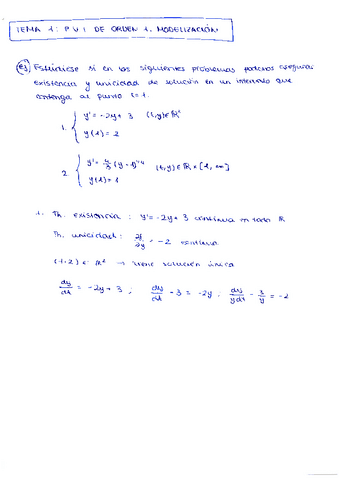 TEMA 1: PVI DE ORDEN 1. MODELIZACIÓN
Ej Estúdiese si en los siguientes problemas podemos asegurar
existencia y unicidad de solución en un intervalo que
contenga al punto t=1.
1. { y' = -2y + 3 (t,y) ∈ ℝ²
y(1) = 2
2. { y' = (y-1) (t,y) ∈ ℝ × [1, ∞]
y(1) = 1
1. Th. existencia: y' = -2y + 3 continua en todo ℝ
Th. unicidad: ∂f/∂y = -2 continua
(1,2) ∈ ℝ² → tiene solución única
dy/dt = -2y + 3; dy/dt - 3 = -2y; dy/ydt - 3/y = -2